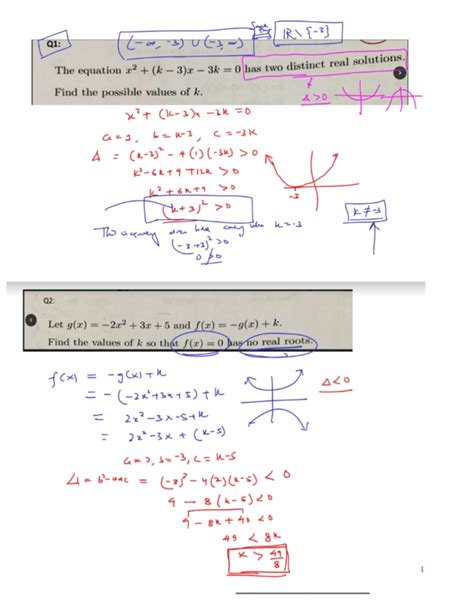 Q1:
(-∞, -3) ∪ (-3, ∞) ℝ\{-3}
The equation x² + (k − 3)x − 3k = 0 has two distinct real solutions.
Find the possible values of k.
Δ>0
x² + (k-3)x -3k =0
a=1, b=k-3, c=-3k
Δ = (k-3)² - 4(1)(-3k) >0
k²-6k+9+12k >0
k²+6k+9 >0
(k+3)² >0
-3
k≠-3
k=-3
(-3+3)²>0
0 > 0
Q2:
Let g(x) = −2x² + 3x + 5 and f(x) = −g(x) + k.
Find the values of k so that f(x) = 0 has no real roots.
f(x) = -g(x)+k
= -(-2x²+3x+5)+k
= 2x²-3x-5+k
= 2x²-3x+(k-5)
Δ<0
a=2, b=-3, c=k-5
Δ= b²-4ac = (-3)²-4(2)(k-5) <0
9 - 8(k-5)<0
9-8k+40 <0
49 < 8k
k > 49/8
1